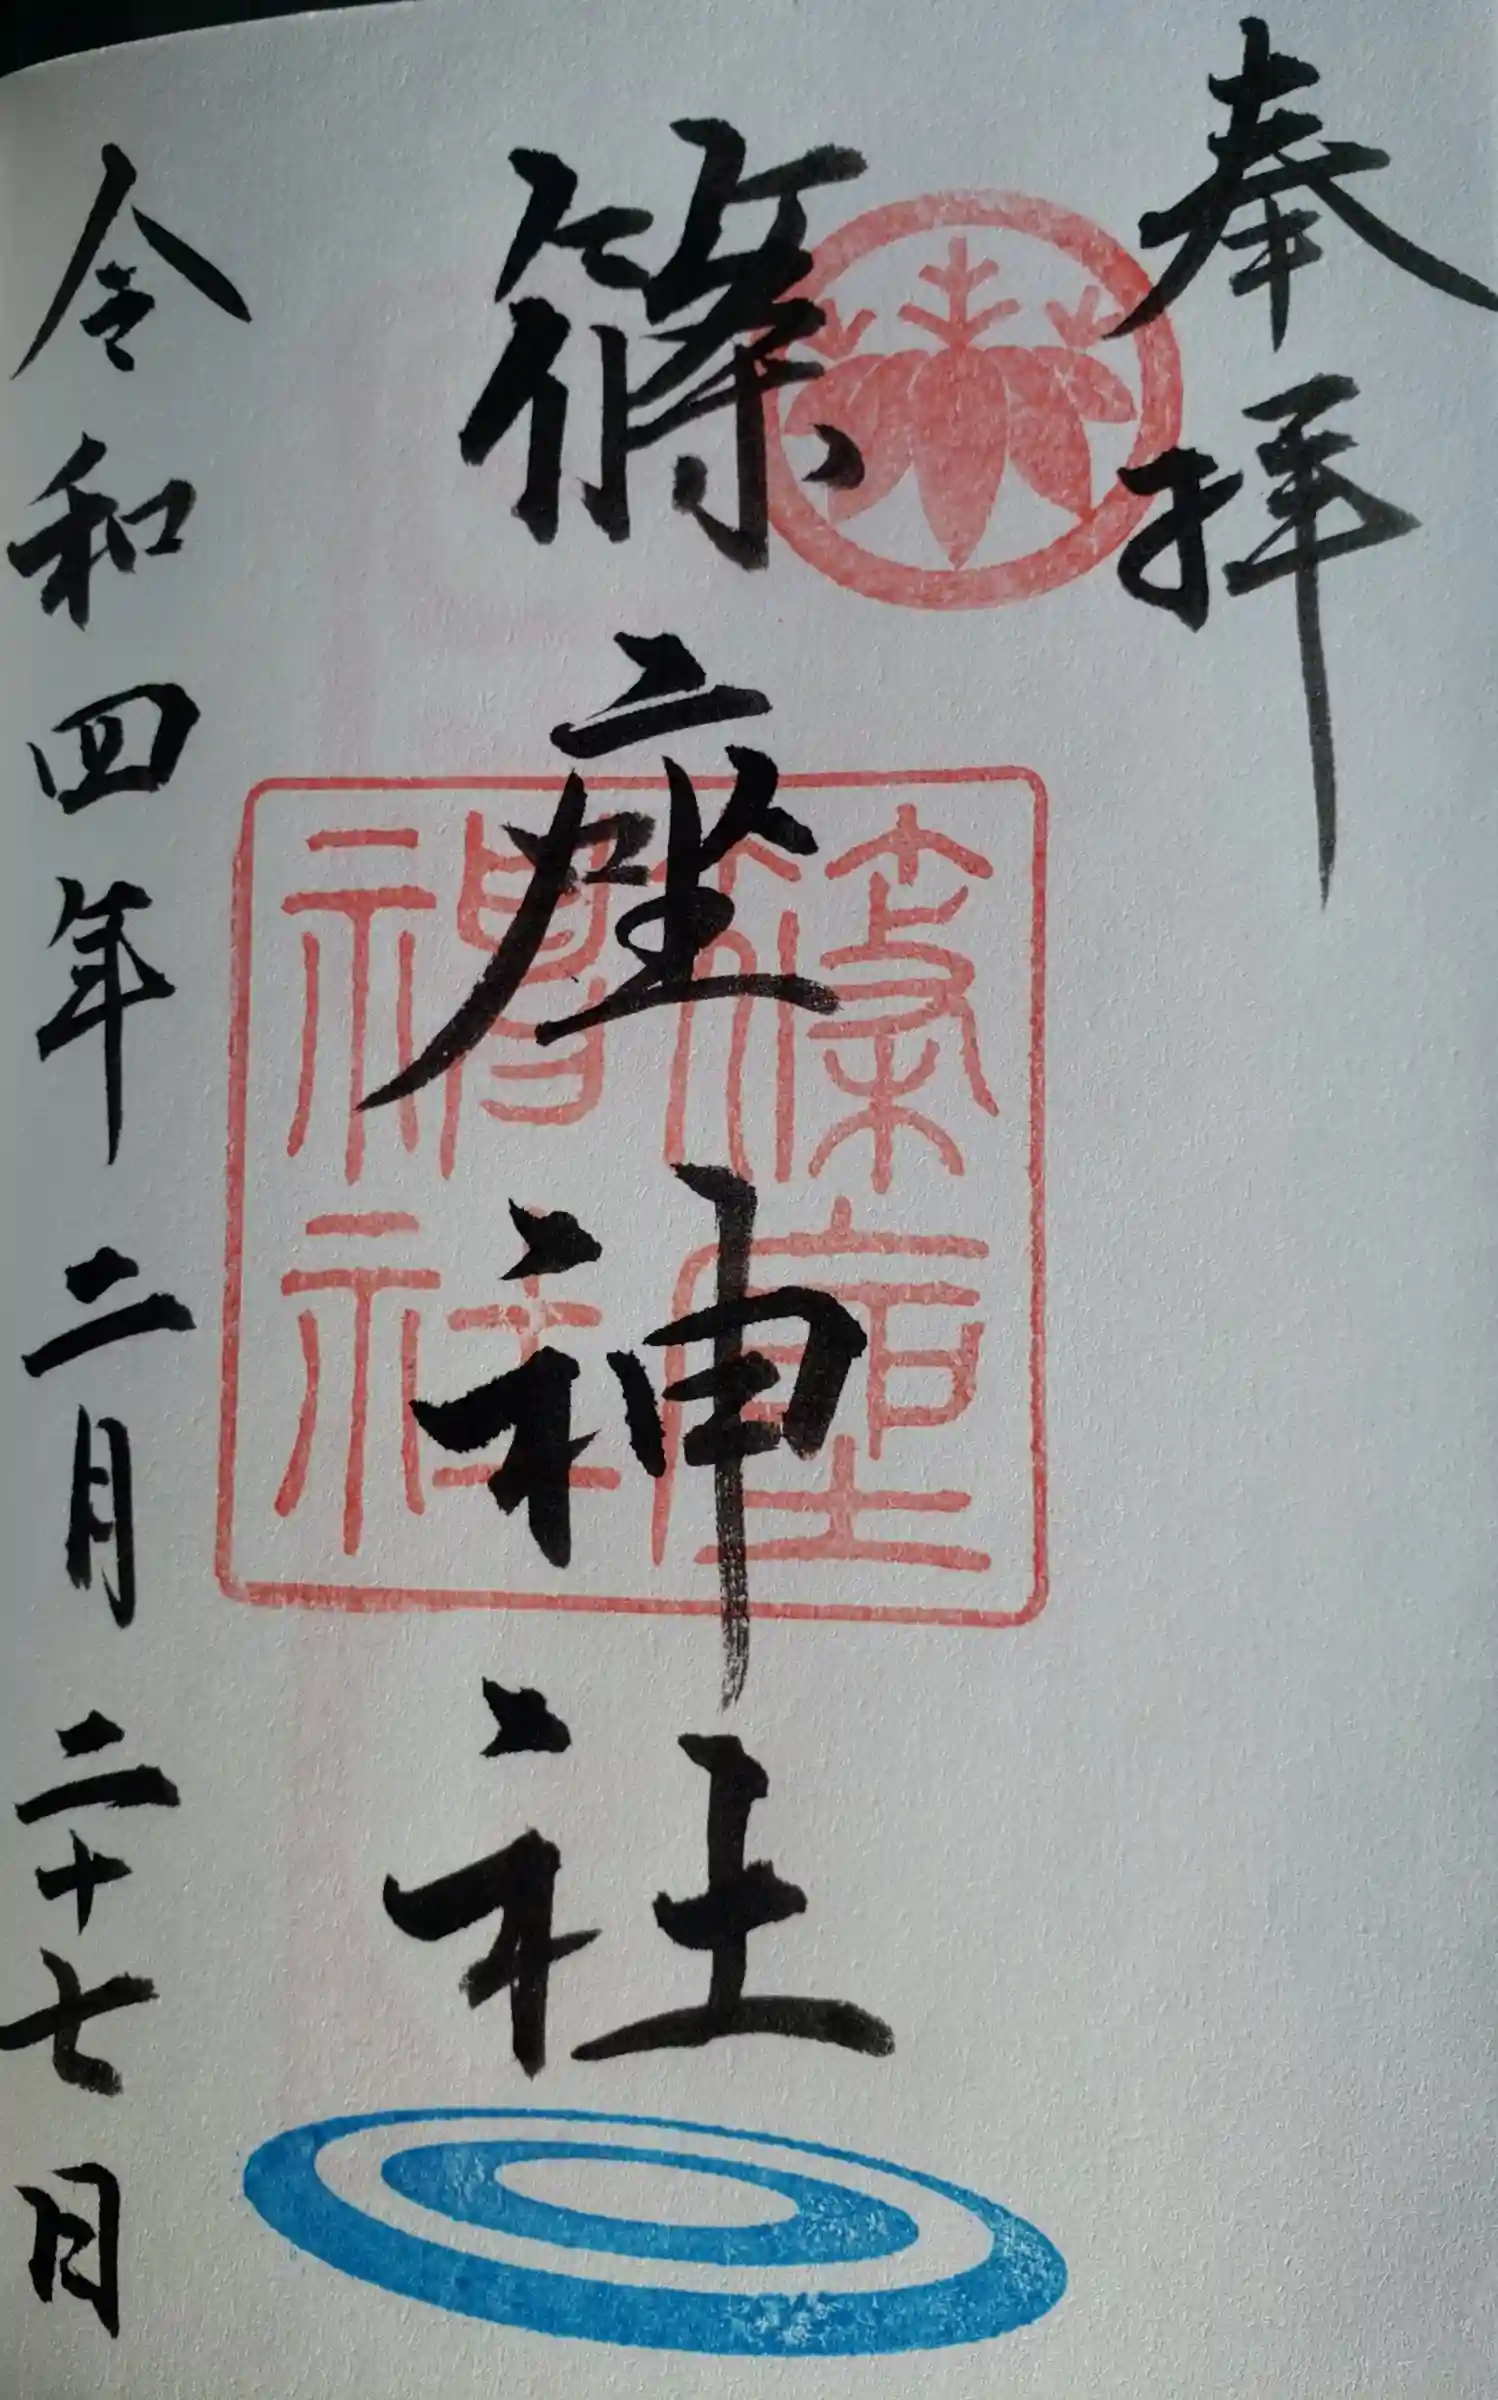 奉拝
篠座神社
篠座神社
令和四年二月二十七日